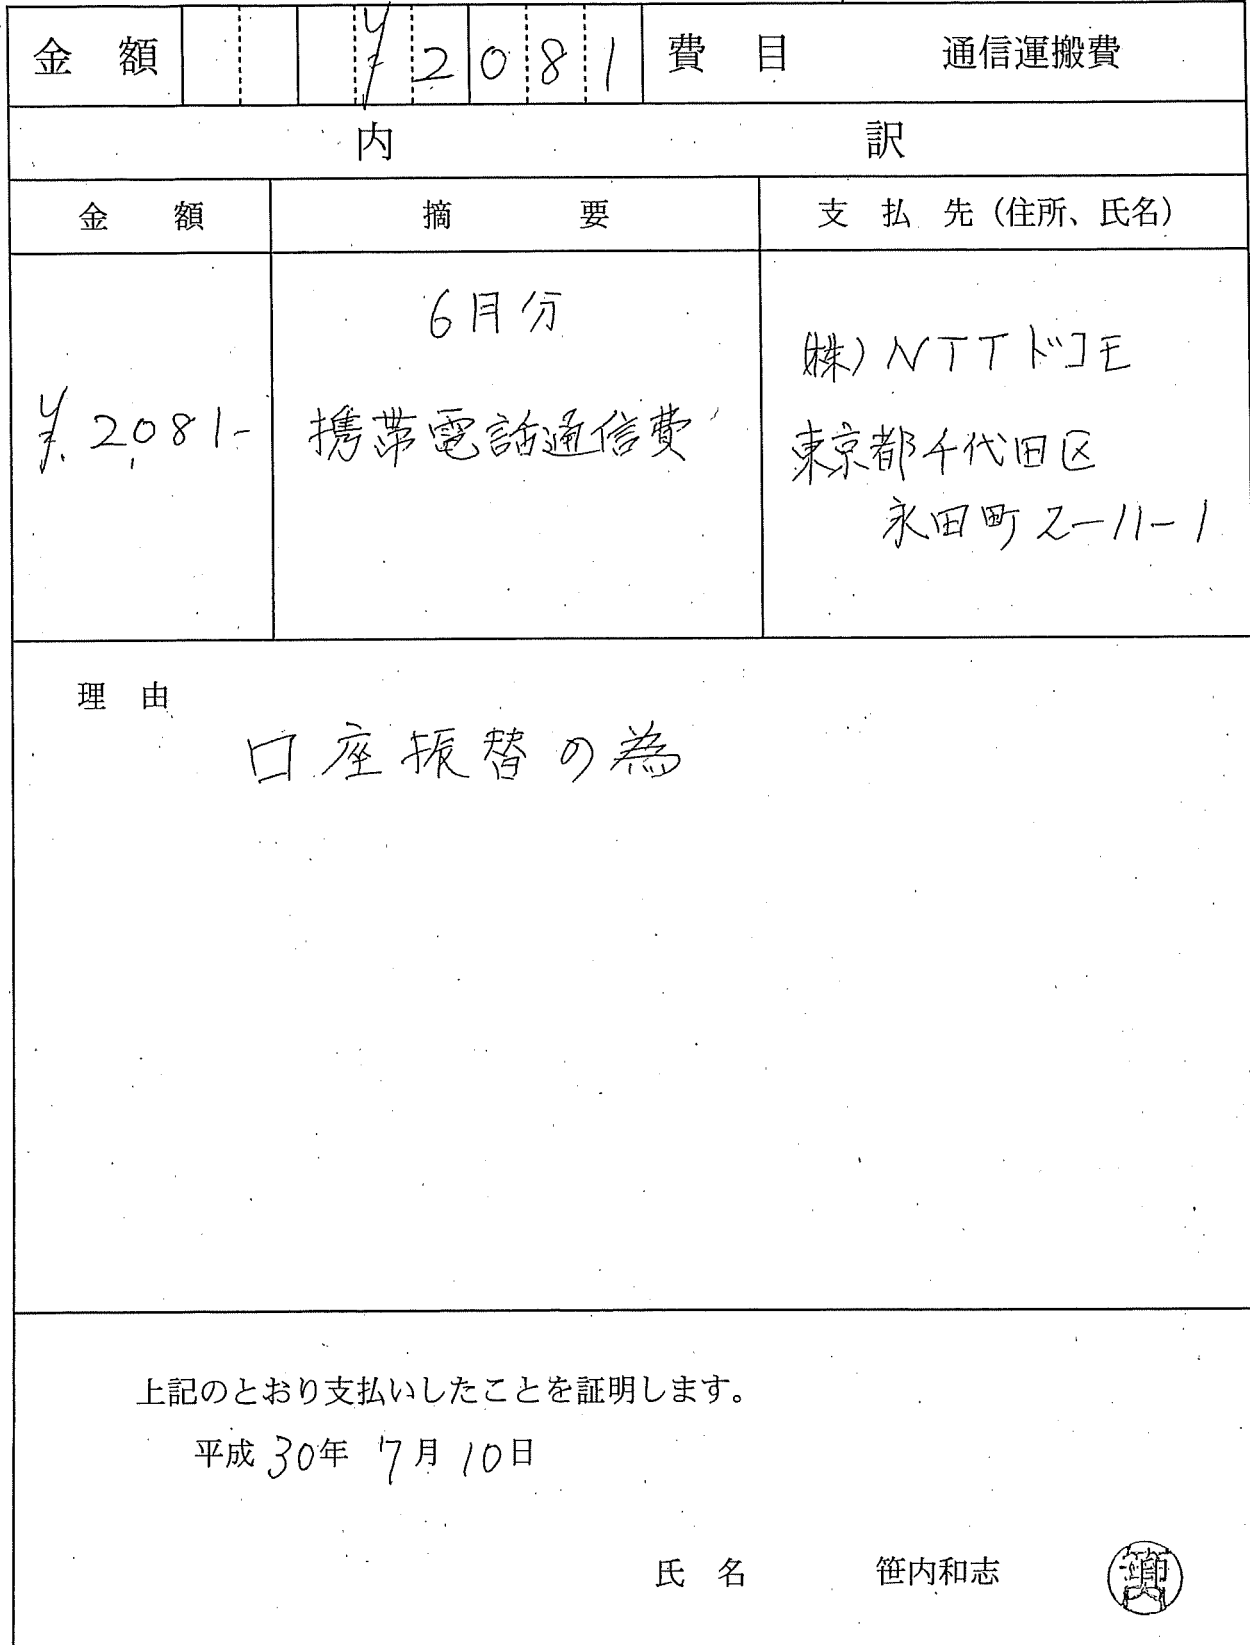 金 額 ¥2081 費 目 通信運搬費
内 訳
金 額 摘 要 支 払 先（住所、氏名）
6月分
㈱NTTドコモ
¥2,081- 携帯電話通信費
東京都千代田区
永田町2-11-1
理 由
口座振替の為
上記のとおり支払いしたことを証明します。
平成30年 7月10日
氏 名 笹内和志